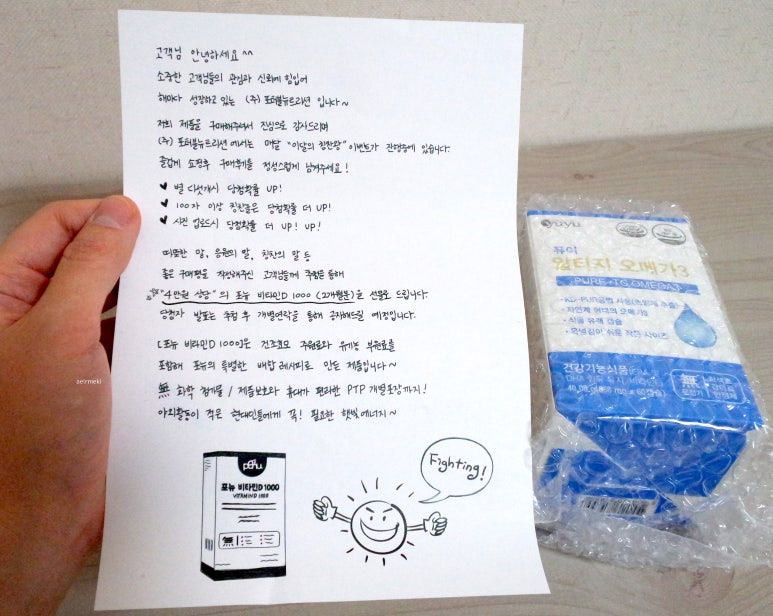 고객님 안녕하세요 ^^
소중한 고객님들의 관심과 신뢰에 힘입어
해마다 성장하고 있는 (주) 포터블뉴트리션 입니다~
저희 제품을 구매해주셔서 진심으로 감사드리며
(주) 포터블뉴트리션에서는 매달 "이달의 칭찬왕" 이벤트가 진행중에 있습니다.
즐겁게 쇼핑후 구매후기를 정성스럽게 남겨주세요!
♥ 별 다섯개시 당첨확률 UP!
♥ 100자 이상 칭찬글은 당첨확률 더 UP!
♥ 사진 업로드시 당첨확률 더 UP! UP!
따뜻한 말, 응원의 말, 칭찬의 말 등
좋은 구매평을 작성해주신 고객님들께 추첨을 통해
"4만원 상당"의 포뉴 비타민D 1000 (2개월분)을 선물로 드립니다.
당첨자 발표는 추첨 후 개별연락을 통해 공지해드릴 예정입니다.
[포뉴 비타민D 1000]은 건조효모 주원료와 유기농 부원료를
포함해 포뉴의 특별한 배합 레시피로 만든 제품입니다~
無 화학 첨가물 / 제품보호와 휴대가 편리한 PTP 개별포장까지!
야외활동이 적은 현대인들에게 꼭! 필요한 햇빛에너지~
poñu
포뉴 비타민D 1000
VITAMIN D 1000
無
Fighting!
aeirmeki
yuyu
유유
알티지 오메가3
PURE rTG OMEGA3
자연계 형태의 오메가3
식물 유래 캡슐
목넘김이 쉬운 작은 사이즈
건강기능식품
無